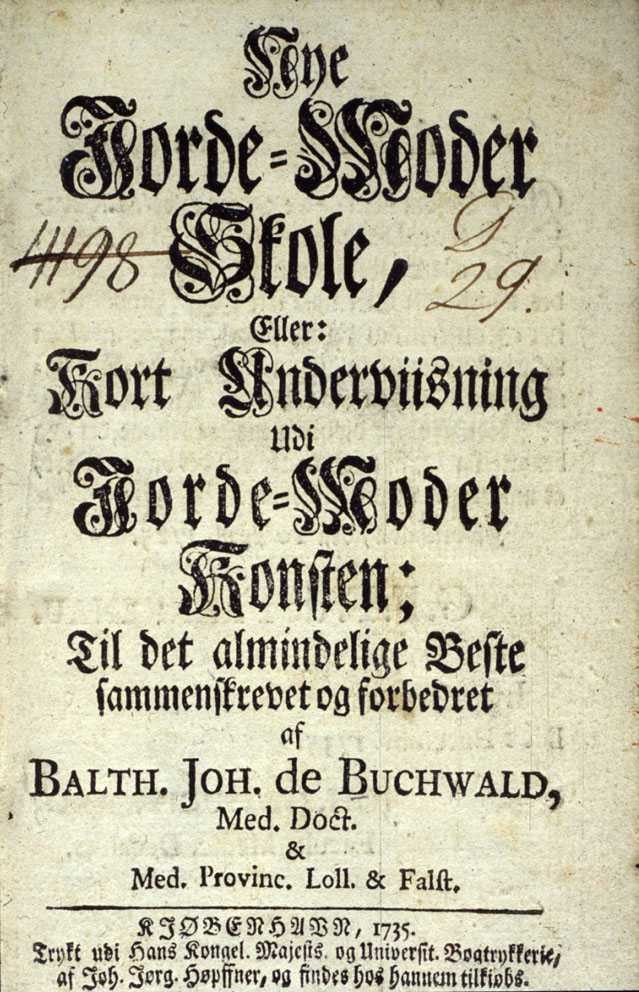 Nye
Jorde-Moder
Skole,
4198
G
29.
Eller:
Kort Underviisning
Udi
Jorde-Moder
Konsten;
Til det almindelige Beste
sammenskrevet og forbedret
af
BALTH. JOH. de BUCHWALD,
Med. Doct.
&
Med. Provinc. Loll. & Falst.
KIØBENHAVN, 1735.
Trykt udi Hans Kongel. Majests. og Universit. Bogtrykkerie,
af Joh. Jørg. Høpffner, og findes hos hannem tilkiøbs.